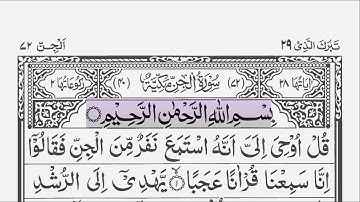 تَبٰرَكَ الَّذِیْ ۲۹ اَلْجِنّ ۷۲
اٰیَاتُهَا ۲۸ (۷۲) سُوْرَةُ الْجِنِّ مَكِّیَّةٌ (۴۰) رُكُوْعَاتُهَا ۲
بِسْمِ اللّٰهِ الرَّحْمٰنِ الرَّحِیْمِ
قُلْ اُوْحِیَ اِلَیَّ اَنَّهُ اسْتَمَعَ نَفَرٌ مِّنَ الْجِنِّ فَقَالُوْۤا
اِنَّا سَمِعْنَا قُرْاٰنًا عَجَبًا ۱ یَّهْدِیْۤ اِلَی الرُّشْدِ